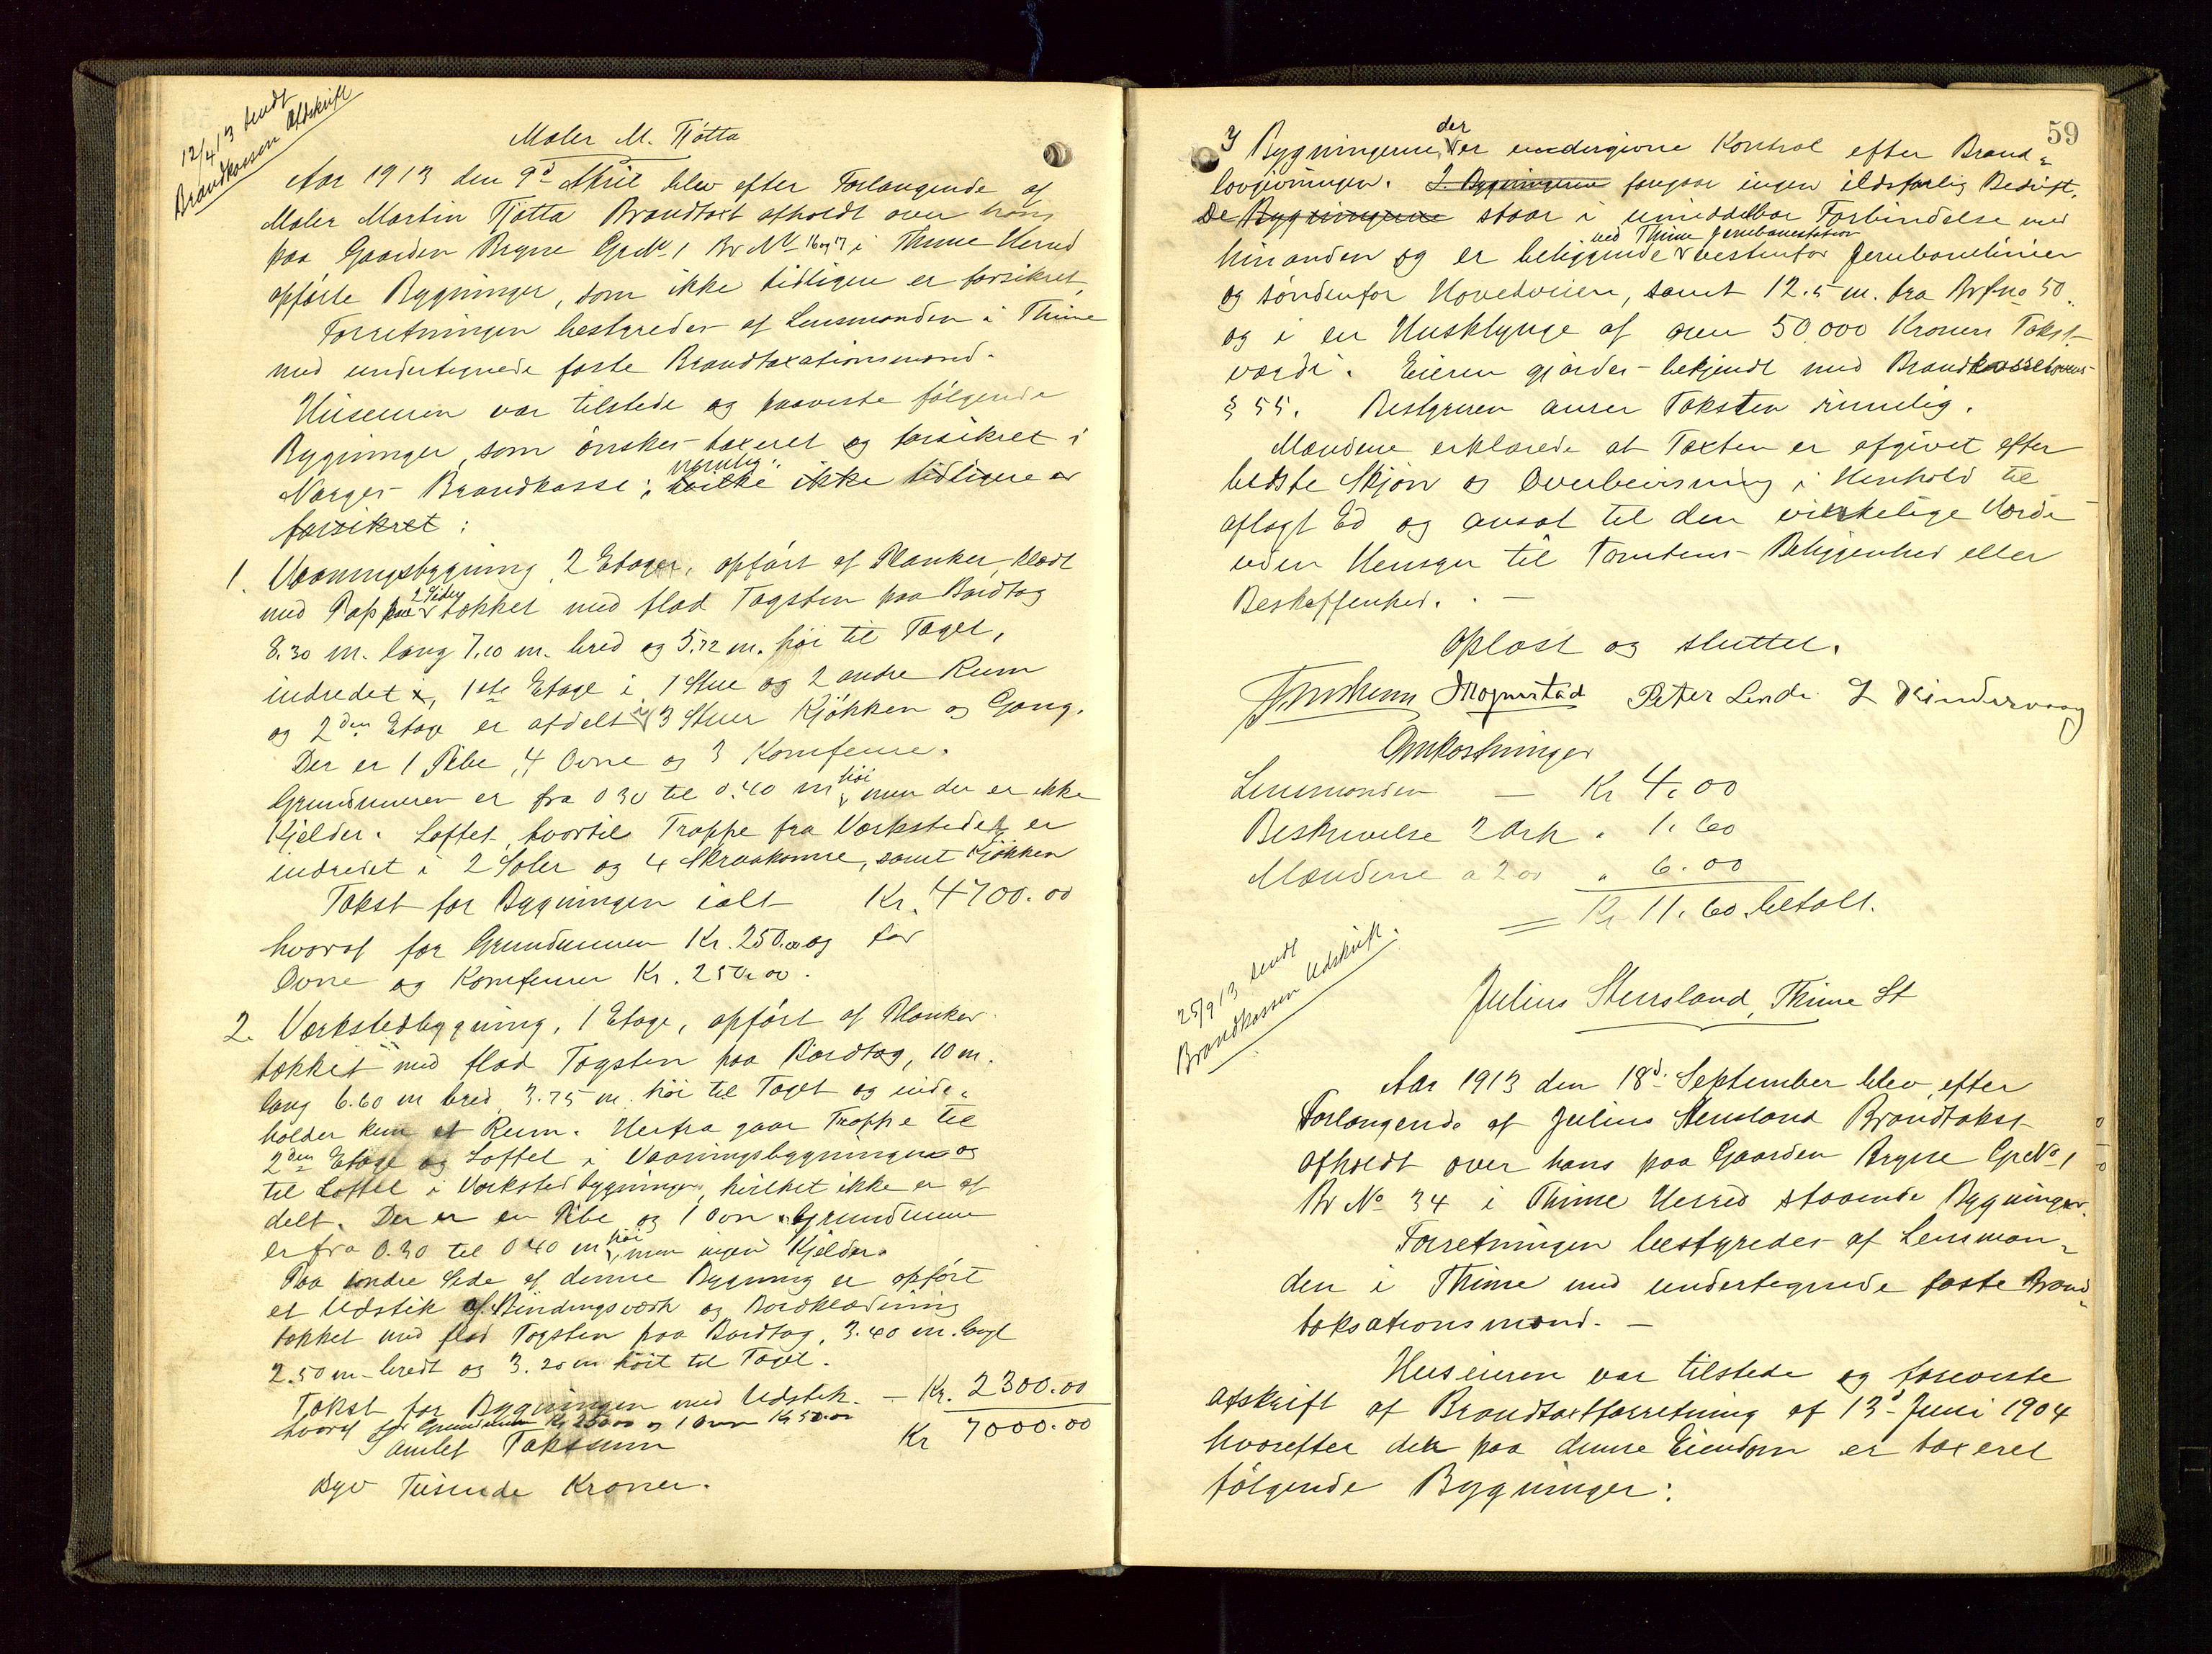 12/4 13 sendt
Brandkassen Afskrift
Maler M. Tjøtta
Aar 1913 den 9d April blev efter Forlangende af
Maler Martin Tjøtta Brandtaxt afholdt over hans
paa Gaarden Bryne GrNo 1 Br No 16 og 17 i Thime Herred
opførte Bygninger, som ikke tidligere er forsikret.
Forretningen bestyredes af Lensmanden i Thime
med undertegnede faste Brandtaxationsmænd.
Huseieren var tilstede og paaviste følgende
Bygninger, som ønskes taxeret og forsikret i
Norges Brandkasse; nemlig: hvilke ikke tidligere er
forsikret:
1. Vaaningsbygning, 2 Etager, opført af Planker, klædt
med Pap paa 2 Sider tækket med flad Tagsten paa Bordtag
8.30 m. lang 7.10 m. bred og 5.72 m. høi til Taget,
indredet i, 1ste Etage i 1 Stue og 2 andre Rum
og 2den Etage er afdelt i 3 Stuer Kjøkken og Gang.
Der er 1 Pibe, 4 Ovne og 3 Komfeure.
Grundmuren er fra 0 30 til 0.40 m høi men der er ikke
Kjelder. Loftet, hvortil Trappe fra Værkstedet, er
indredet i 2 Saler og 4 Skraakamre, samt Kjøkken
Takst for Bygningen ialt Kr. 4700.00
hvoraf for Grundmuren Kr. 250.00 og for
Ovne og Komfeurer Kr. 250.00.
2. Værkstedbygning, 1 Etage, opført af Planker
tækket med flad Tagsten paa Bordtag, 10 m.
lang 6.60 m bred, 3.75 m. høi til Taget og inde-
holder kun et Rum. Herfra gaar Trappe til
2den Etage og Loftet i Vaaningsbygningen og
til Loftet i Værkstedbygningen, hvilket ikke er af
delt. Der er en Pibe og 1 Ovn. Grundmuren
er fra 0.30 til 0 40 m høi, men ingen Kjelder.
Paa søndre Side af denne Bygning er opført
et Udstik af Bindingsværk og Bordklædning
tækket med flad Tagsten paa Bordtag, 3.40 m. langt
2.50 m. bredt og 3.20 m høit til Taget.
Takst for Bygningen med Udstik. — Kr. 2300.00
hvoraf for Grundmuren Kr 250.00 og 1 Ovn Kr 50.00
Samlet Takssum Kr 7000.00
Syv Tusinde Kroner.
59
I Bygningerne, der er undergivne Kontrol efter Brand-
lovgivningen. I Bygningerne foregaar ingen ildsfarlig Bedrift.
De Bygningerne staar i umiddelbar Forbindelse med
hinanden og er beliggende ved Thime Jernbanestation vestenfor Jernbanelinien
og søndenfor Hovedveien, samt 12.5 m. fra Brfno 50
og i en Husklynge af over 50.000 Kroners Takst-
værdi. Eieren gjordes bekjendt med Brandkasselovens
§ 55. Bestyreren anser Taksten rimelig.
Mændene erklærede at Taxten er afgivet efter
bedste Skjøn og Overbevisning i Henhold til
aflagt Ed og ansat til den virkelige Værdi
uden Hensyn til Tomtens Beliggenhed eller
Beskaffenhed. —
Oplæst og sluttet.
Peter Linde
Omkostninger
Lensmanden — Kr 4.00
Beskrivelse 2 Ark " 1.60
Mændene a 2 00 " 6.00
= Kr 11.60 betalt.
25/9 13 sendt
Brandkassen Udskrift.
Julius Stensland, Thime St
Aar 1913 den 18d. September blev efter
Forlangende af Julius Stensland Brandtakst
afholdt over hans paa Gaarden Bryne GrNo 1
Br No 34 i Thime Herred staaende Bygninger.
Forretningen bestyredes af Lensman-
den i Thime med undertegnede faste Brand-
taksationsmænd. —
Huseieren var tilstede og foreviste
Afskrift af Brandtaxtforretning af 13d Juni 1904
hvorefter der paa denne Eiendom er taxeret
følgende Bygninger: